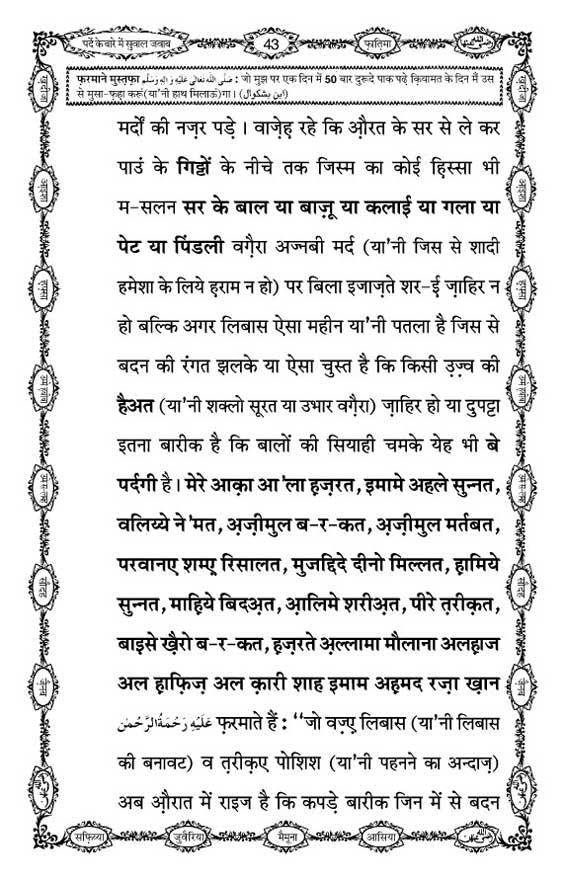 पर्दे के बारे में सुवाल जवाब
43
फ़ातिमा
फ़रमाने मुस्तफ़ा صلى الله تعالى عليه واله وسلم : जो मुझ पर एक दिन में 50 बार दुरूदे पाक पढ़े क़ियामत के दिन मैं उस
से मुसा-फ़हा करूं(या'नी हाथ मिलाऊं)गा। (ابن بشكوال)
मर्दों की नज़र पड़े । वाज़ेह़ रहे कि औ़रत के सर से ले कर
पाउं के गिट्टों के नीचे तक जिस्म का कोई हि़स्सा भी
म-सलन सर के बाल या बाज़ू या कलाई या गला या
पेट या पिंडली वग़ैरा अज्नबी मर्द (या'नी जिस से शादी
हमेशा के लिये ह़राम न हो) पर बिला इजाज़ते शर-ई़ ज़ाहिर न
हो बल्कि अगर लिबास ऐसा महीन या'नी पतला है जिस से
बदन की रंगत झलके या ऐसा चुस्त है कि किसी उ़ज़्व की
हैअत (या'नी शक्लो सूरत या उभार वग़ैरा) ज़ाहिर हो या दुपट्टा
इतना बारीक है कि बालों की सियाही चमके येह भी बे
पर्दगी है। मेरे आक़ा आ'ला ह़ज़रत, इमामे अहले सुन्नत,
वलिय्ये ने'मत, अ़ज़ीमुल ब-र-कत, अ़ज़ीमुल मर्तबत,
परवानए शम्ए़ रिसालत, मुजद्दिदे दीनो मिल्लत, ह़ामिये
सुन्नत, माहि़ये बिदअ़त, आ़लिमे शरीअ़त, पीरे त़रीक़त,
बाइ़से ख़ैरो ब-र-कत, ह़ज़रते अ़ल्लामा मौलाना अलहाज
अल ह़ाफ़िज़ अल क़ारी शाह इमाम अह़मद रज़ा ख़ान
عليه رحمة الرحمن फ़रमाते हैं : ‘‘जो वज़्ए़ लिबास (या'नी लिबास
की बनावट) व त़रीक़ए पोशिश (या'नी पहनने का अन्दाज़)
अब औ़रात में राइज है कि कपड़े बारीक जिन में से बदन
सफ़िय्या
जुवैरिया
मैमूना
आसिया